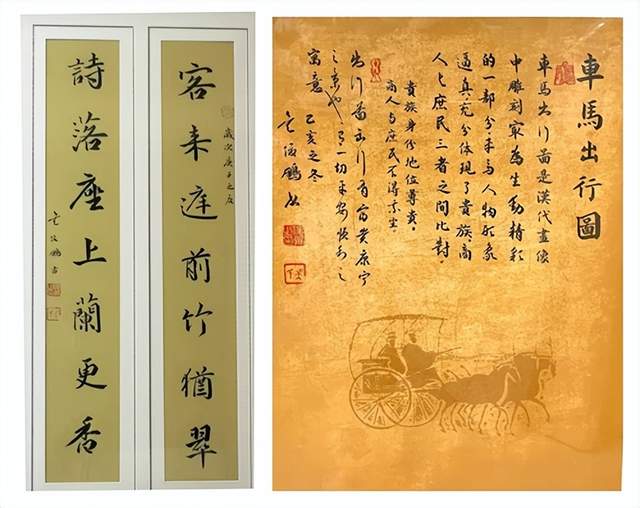 客来庭前竹猶翠
歲次庚子之夏
詩落座上蘭更香
車馬出行圖
車馬出行圖是漢代畫像
中雕刻最為生動精彩
的一部分车马人物形象
逼真充分体現了貴族、商
人与庶民三者之间比對.
貴族身份地位尊貴,
商人与庶民不得乘坐.
出行圖出行有富贵康宁
一切平安顺利之
寓意
己亥之冬